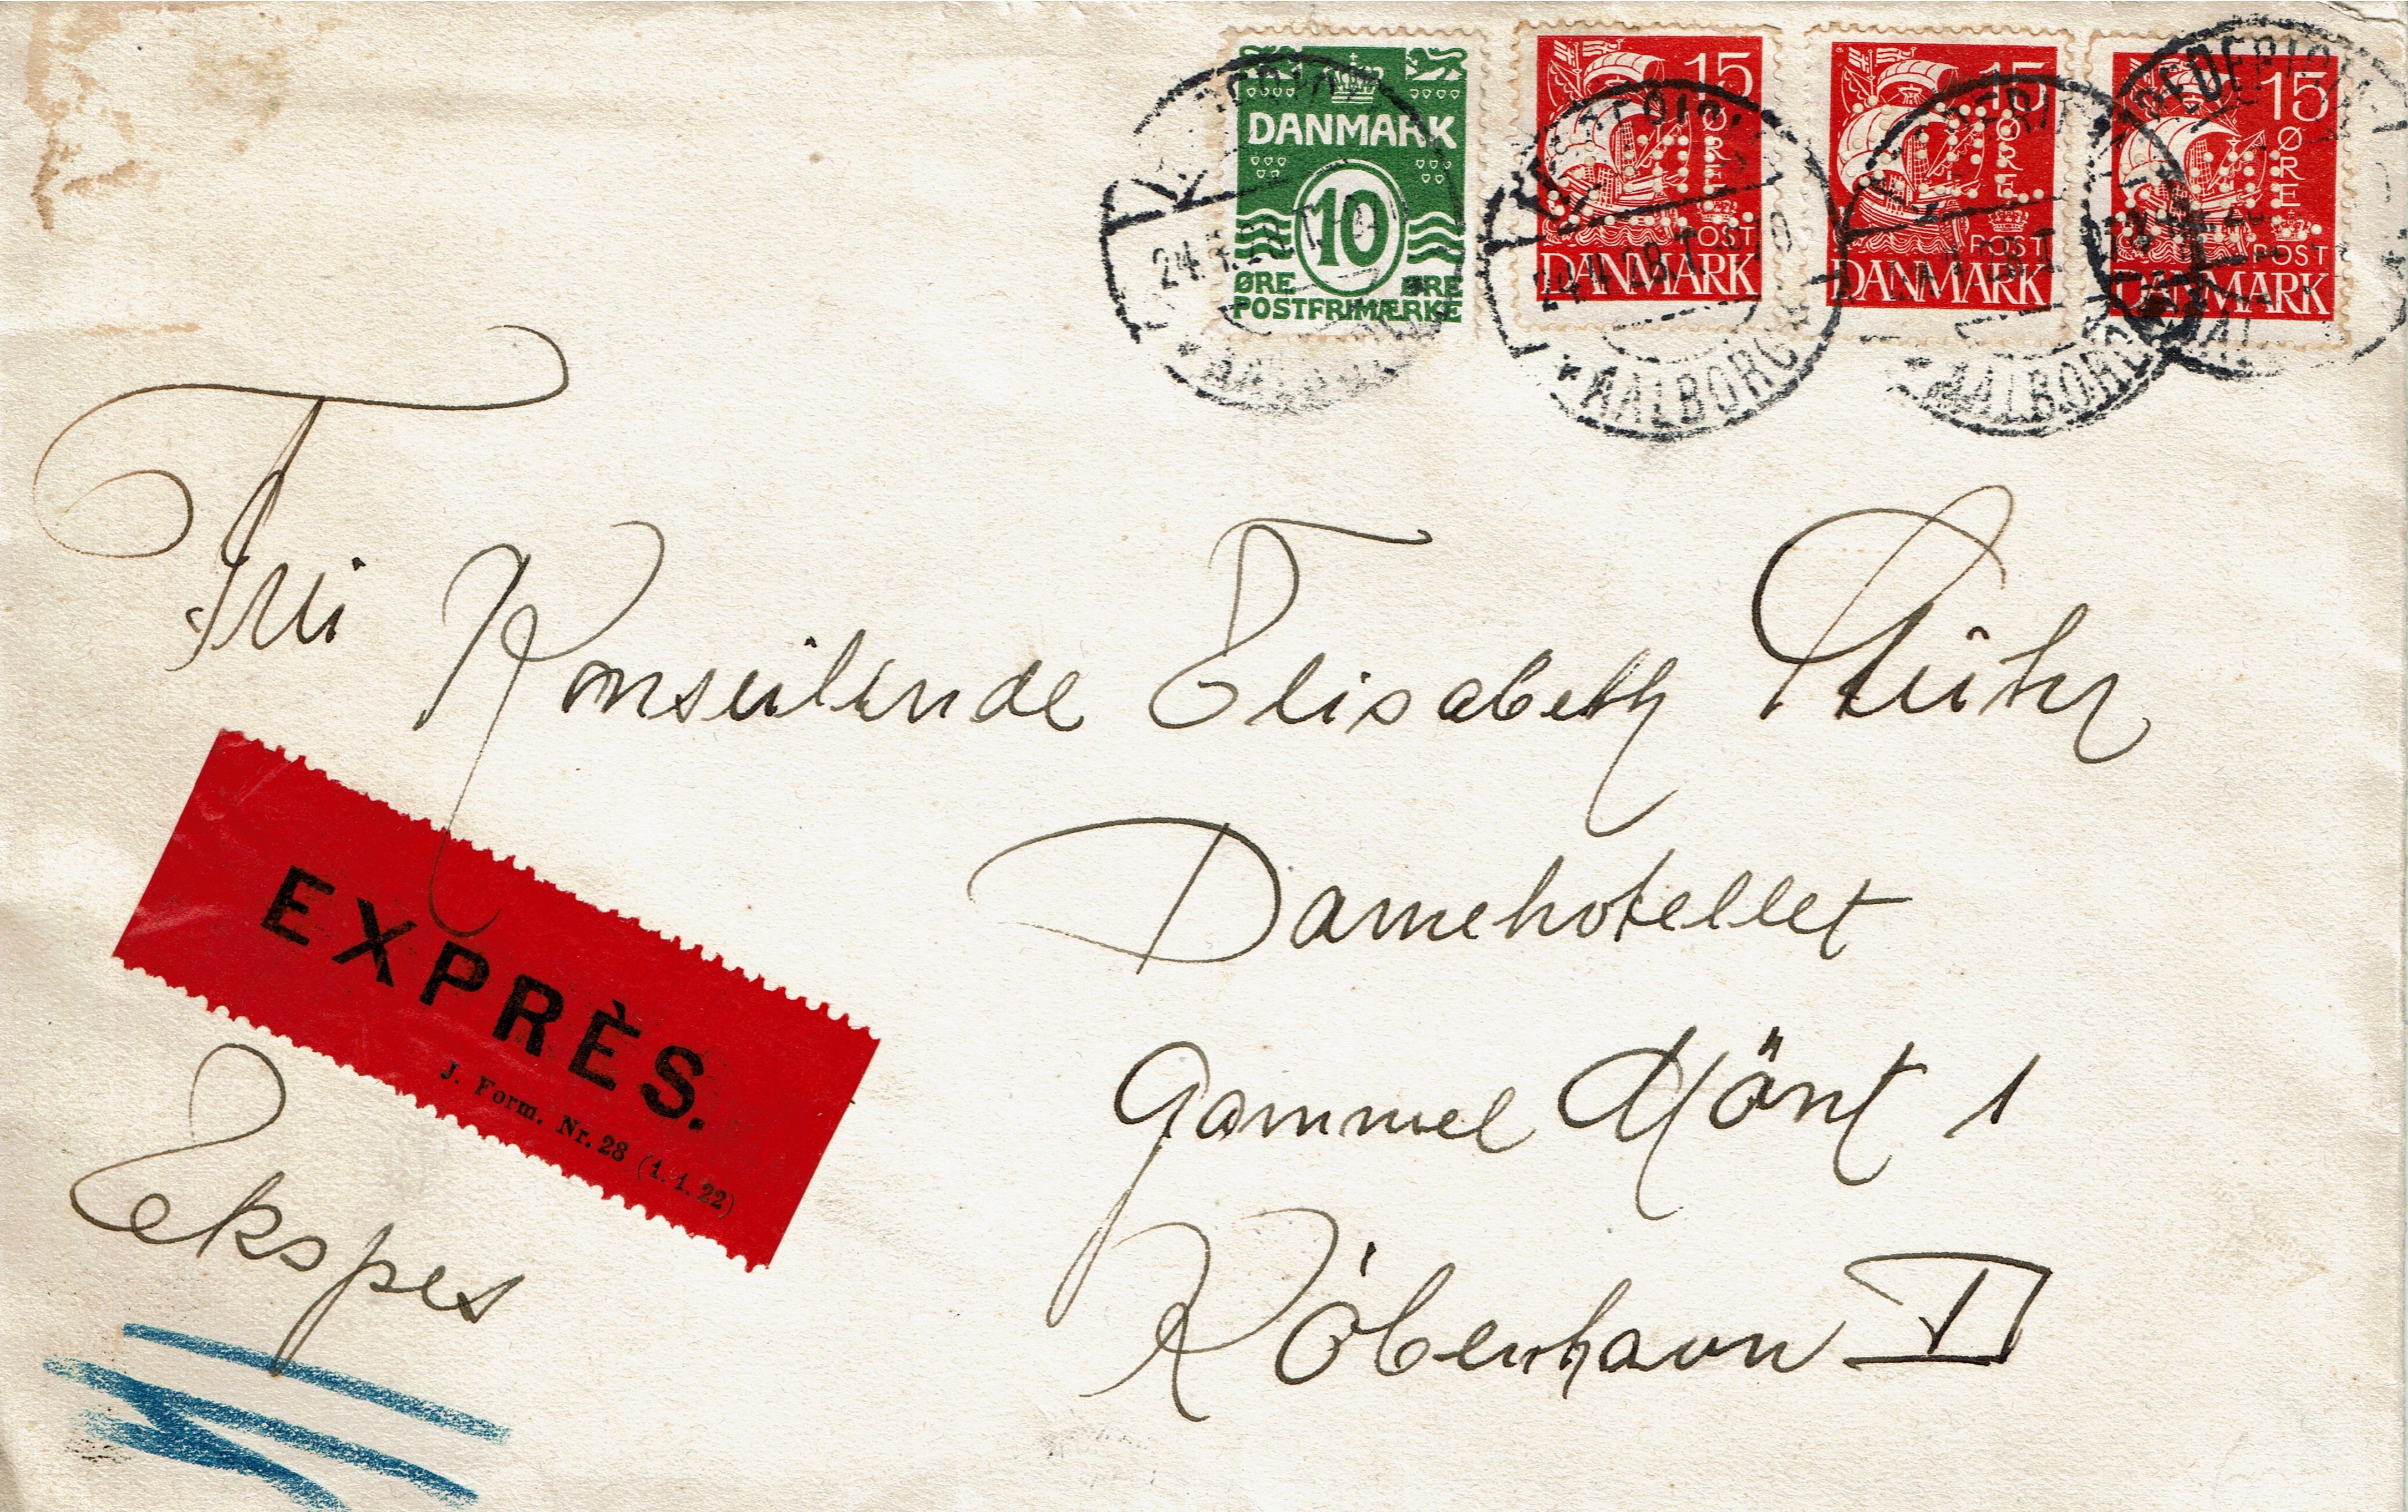 DANMARK
10
ØRE ØRE
POSTFRIMÆRKE
15
ØRE
POST
DANMARK
15
ØRE
POST
DANMARK
15
ØRE
POST
DANMARK
AALBORG
AALBORG
Fru
Elisabeth
Damehotellet
Gammel Mönt 1
Köbenhavn
EXPRÈS.
J. Form. Nr. 28 (1. 1. 22)
Ekspes